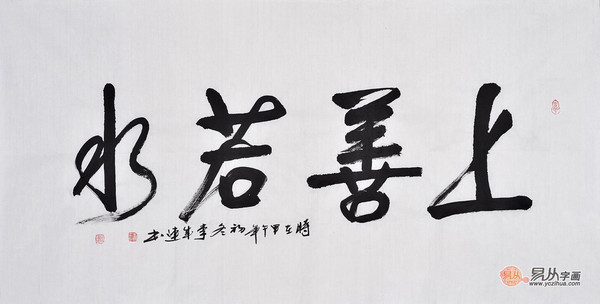 上善若水
時在甲午年初冬李成連书
易从字画
www.yczihua.com